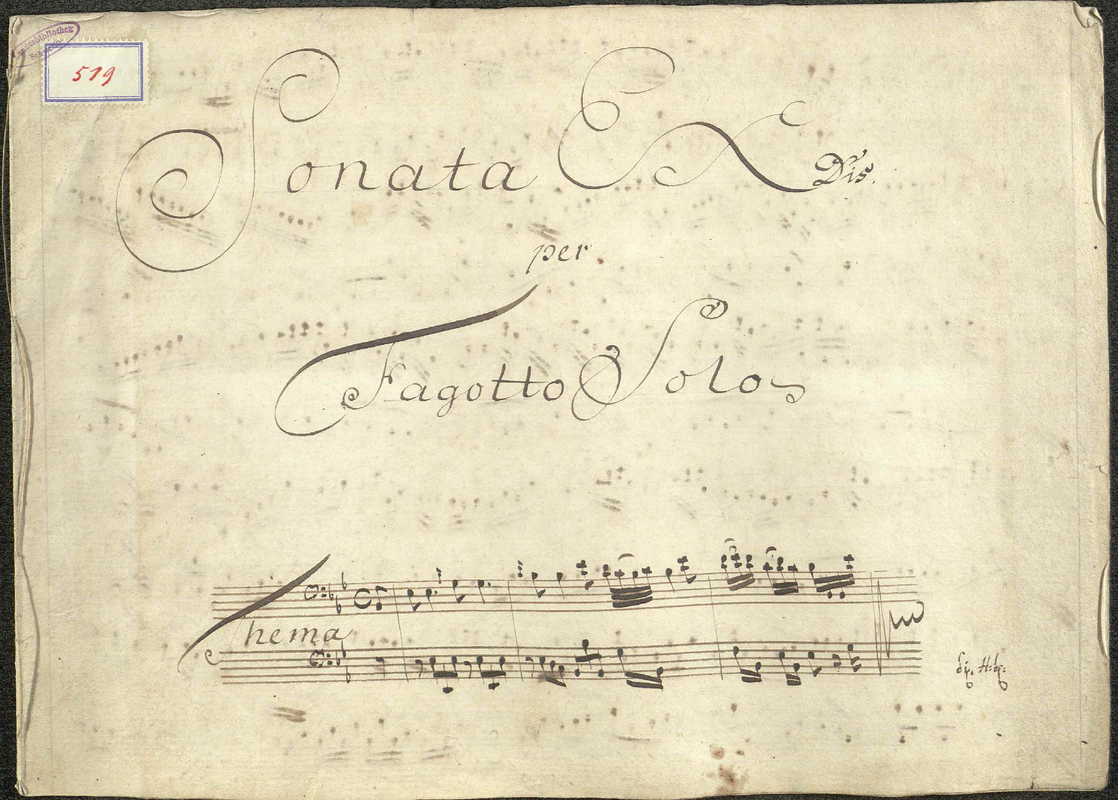 519
Sonata Ex Dis.
per
Fagotto Solo
Thema